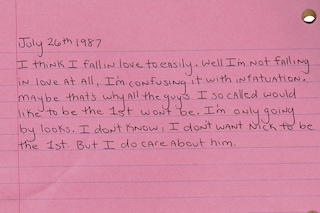 July 26th 1987
I think I fall in love to easily. Well I'm not falling
in love at all, I'm confusing it with infatuation.
maybe thats why all the guys I so called would
like to be the 1st wont be. I'm only going
by looks. I dont know, I dont want Nick to be
the 1st. But I do care about him.